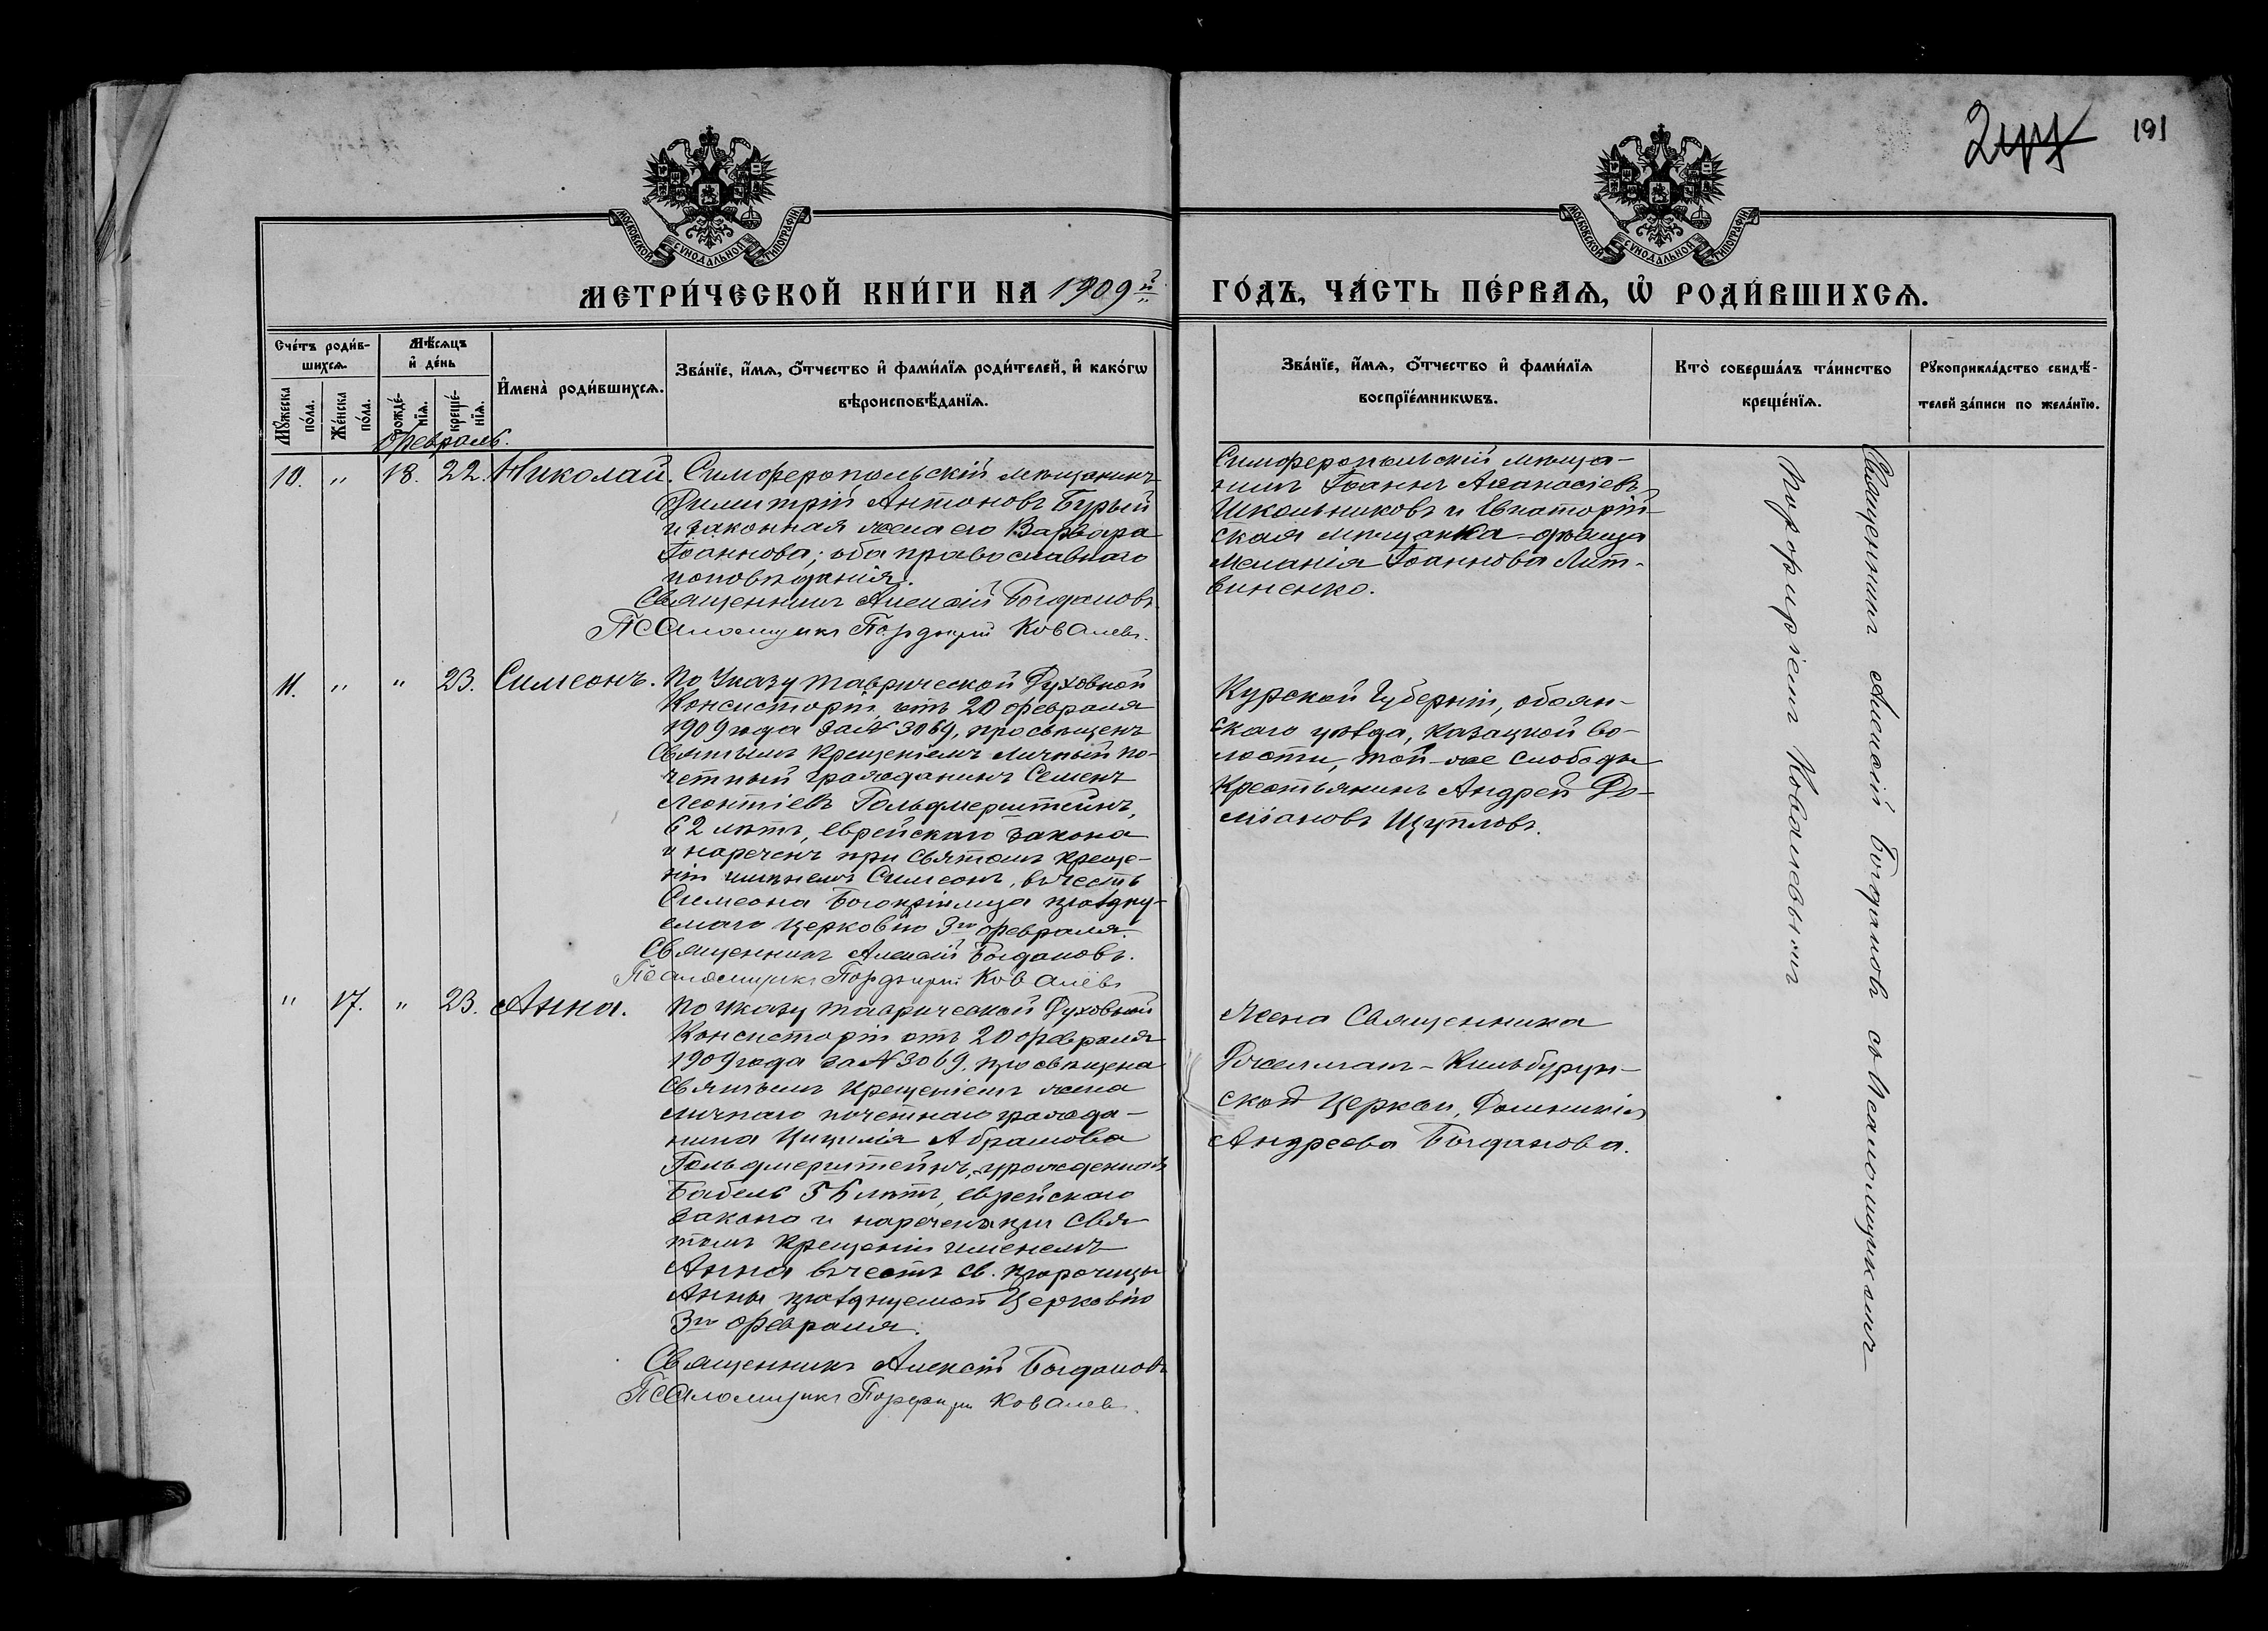 191
МОСКОВСКОЙ СУНОДАЛЬНОЙ ТИПОГРАФІИ.
МОСКОВСКОЙ СУНОДАЛЬНОЙ ТИПОГРАФІИ.
МЕТРИ́ЧЕСКОЙ КНИ́ГИ НА 1909й
ГО́ДЪ, ЧА́СТЬ ПЕ́РВАѦ, Ѡ҆ РОДИ́ВШИХСѦ.
Сче́тъ роди́в-
шихсѧ.
Мꙋ́жеска по́ла.
Же́нска по́ла.
Мѣ́сѧцъ
и҆ де́нь
рожде́-
нїѧ.
креще́-
нїѧ.
И҆мена̀ роди́вшихсѧ.
Зва́нїе, и҆́мѧ, ѻ҆́тчество и҆ фами́лїѧ роди́телей, и҆ како́гѡ
вѣроисповѣ́данїѧ.
Зва́нїе, и҆́мѧ, ѻ҆́тчество и҆ фами́лїѧ
воспрїе́мникѡвъ.
Кто̀ соверша́лъ та́инство
креще́нїѧ.
Рꙋкоприкла́дство свидѣ́-
телей за́писи по жела́нїю.
Февраль.
10. " 18. 22. Николай. Симферопольскій мѣщанинъ
Димитрій Антоновъ Бурый
и законная жена его Варвара
Іоаннова; оба православнаго
исповѣданія.
Священникъ Алексій Богдановъ.
Псаломщикъ Порфирій Ковалевъ.
Симферопольскій мѣща-
нинъ Іоаннъ Аѳанасіевъ
Школьниковъ и Евпаторій-
ская мѣщанка-дѣвица
Меланія Іоаннова Лит-
виненко.
11. " " 23. Симеонъ. По Указу Таврической Духовной
Консисторіи, отъ 20 февраля
1909 года за № 3069, просвѣщенъ
Святымъ Крещеніемъ личный по-
четный гражданинъ Семенъ
Леонтіевъ Гольдмерштейнъ,
62 лѣтъ, еврейскаго закона
и нареченъ при Святомъ Креще-
ніи именемъ Симеонъ, въ честь
Симеона Богопріимца праздну-
емаго Церковію 3го февраля.
Священникъ Алексій Богдановъ.
Псаломщикъ Порфирій Ковалевъ
Курской Губерніи, обоян-
скаго уѣзда, Казацкой во-
лости, той-же слободы
Крестьянинъ Андрей Да-
міановъ Щупловъ.
" 17. " 23. Анна. По Указу Таврической Духовной
Консисторіи отъ 20 февраля
1909 года за № 3069, просвѣщена
Святымъ Крещеніемъ жена
личнаго почетнаго гражда-
нина Цицилія Абрамова
Гольдмерштейнъ, урожденная
Бабель 56 лѣтъ, еврейскаго
закона и наречена при Свя-
томъ Крещеніи именемъ
Анна въ честь св. пророчицы
Анны празднуемой Церковію
3го февраля.
Священникъ Алексій Богдановъ
Псаломщикъ Порфирій Ковалевъ.
Жена Священника
Джелмам-Кильбурун-
ской Церкви, Домникія
Андреева Богданова.
Священникъ Алексій Богдановъ съ Псаломщикомъ
Порфиріемъ Ковалевымъ